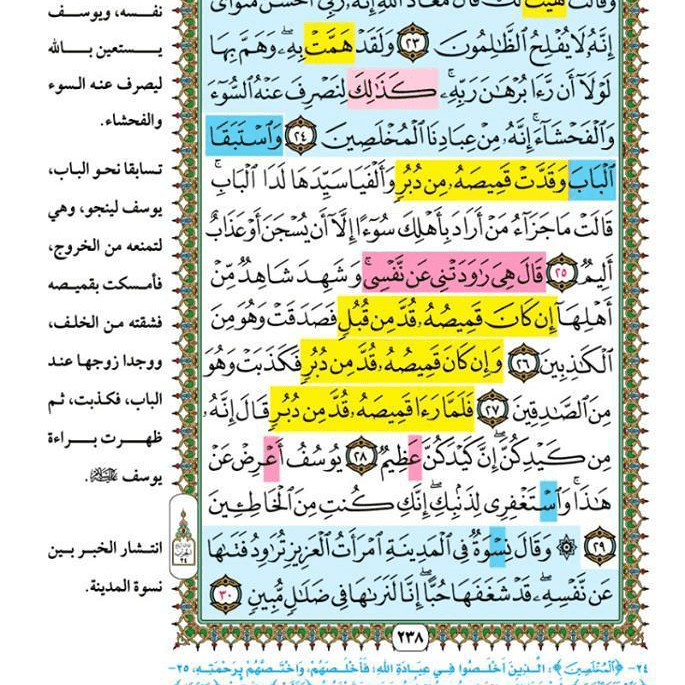 وَقَالَتْ هَيْتَ لَكَ قَالَ مَعَاذَ ٱللَّهِ إِنَّهُۥ رَبِّىٓ أَحْسَنَ مَثْوَاىَ
إِنَّهُۥ لَا يُفْلِحُ ٱلظَّـٰلِمُونَ ٢٣ وَلَقَدْ هَمَّتْ بِهِۦ وَهَمَّ بِهَا
لَوْلَآ أَن رَّءَا بُرْهَـٰنَ رَبِّهِۦ كَذَٰلِكَ لِنَصْرِفَ عَنْهُ ٱلسُّوٓءَ
وَٱلْفَحْشَآءَ إِنَّهُۥ مِنْ عِبَادِنَا ٱلْمُخْلَصِينَ ٢٤ وَٱسْتَبَقَا
ٱلْبَابَ وَقَدَّتْ قَمِيصَهُۥ مِن دُبُرٍ وَأَلْفَيَا سَيِّدَهَا لَدَا ٱلْبَابِ
قَالَتْ مَا جَزَآءُ مَنْ أَرَادَ بِأَهْلِكَ سُوٓءًا إِلَّآ أَن يُسْجَنَ أَوْ عَذَابٌ
أَلِيمٌ ٢٥ قَالَ هِىَ رَٰوَدَتْنِى عَن نَّفْسِى وَشَهِدَ شَاهِدٌ مِّنْ
أَهْلِهَآ إِن كَانَ قَمِيصُهُۥ قُدَّ مِن قُبُلٍ فَصَدَقَتْ وَهُوَ مِنَ
ٱلْكَـٰذِبِينَ ٢٦ وَإِن كَانَ قَمِيصُهُۥ قُدَّ مِن دُبُرٍ فَكَذَبَتْ وَهُوَ
مِنَ ٱلصَّـٰدِقِينَ ٢٧ فَلَمَّا رَءَا قَمِيصَهُۥ قُدَّ مِن دُبُرٍ قَالَ إِنَّهُۥ
مِن كَيْدِكُنَّ إِنَّ كَيْدَكُنَّ عَظِيمٌ ٢٨ يُوسُفُ أَعْرِضْ عَنْ
هَـٰذَا وَٱسْتَغْفِرِى لِذَنۢبِكِ إِنَّكِ كُنتِ مِنَ ٱلْخَاطِـِٔينَ
٢٩ ۞ وَقَالَ نِسْوَةٌ فِى ٱلْمَدِينَةِ ٱمْرَأَتُ ٱلْعَزِيزِ تُرَٰوِدُ فَتَىٰهَا
عَن نَّفْسِهِۦ قَدْ شَغَفَهَا حُبًّا إِنَّا لَنَرَىٰهَا فِى ضَلَـٰلٍ مُّبِينٍ ٣٠
٢٣٨
نفسه، ويوسف
يستعين بالله
ليصرف عنه السوء
والفحشاء.
تسابقا نحو الباب،
يوسف لينجو، وهي
لتمنعه من الخروج،
فأمسكت بقميصه
فشقته من الخلف،
ووجدا زوجها عند
الباب، فكذبت، ثم
ظهرت براءة
يوسف عليه السلام.
انتشار الخبر بين
نسوة المدينة.
٢٤- ﴿ٱلْمُخْلَصِينَ﴾: الَّذِينَ أَخْلَصُوا فِي عِبَادَةِ اللهِ؛ فَأَخْلَصَهُمْ، وَاخْتَصَّهُمْ بِرَحْمَتِهِ، ٢٥-